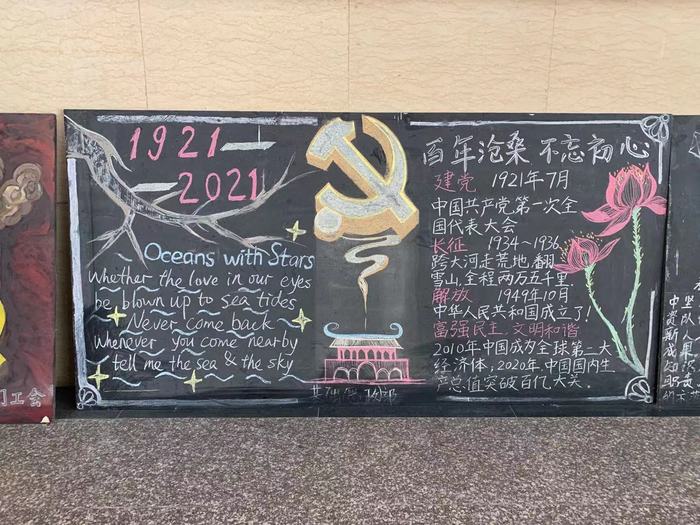 1921—
—2021
Oceans with Stars
Whether the love in our eyes
be blown up to sea tides
Never come back
Whenever you come nearby
tell me the sea & the sky
百年沧桑 不忘初心
建党 1921年7月
中国共产党第一次全
国代表大会
长征 1934~1936
跨大河走荒地,翻
雪山,全程两万五千里.
解放 1949年10月
中华人民共和国成立了!
富强民主,文明和谐
2010年中国成为全球第二大
经济体,2020年,中国国内生
产总值突破百亿大关.
工会